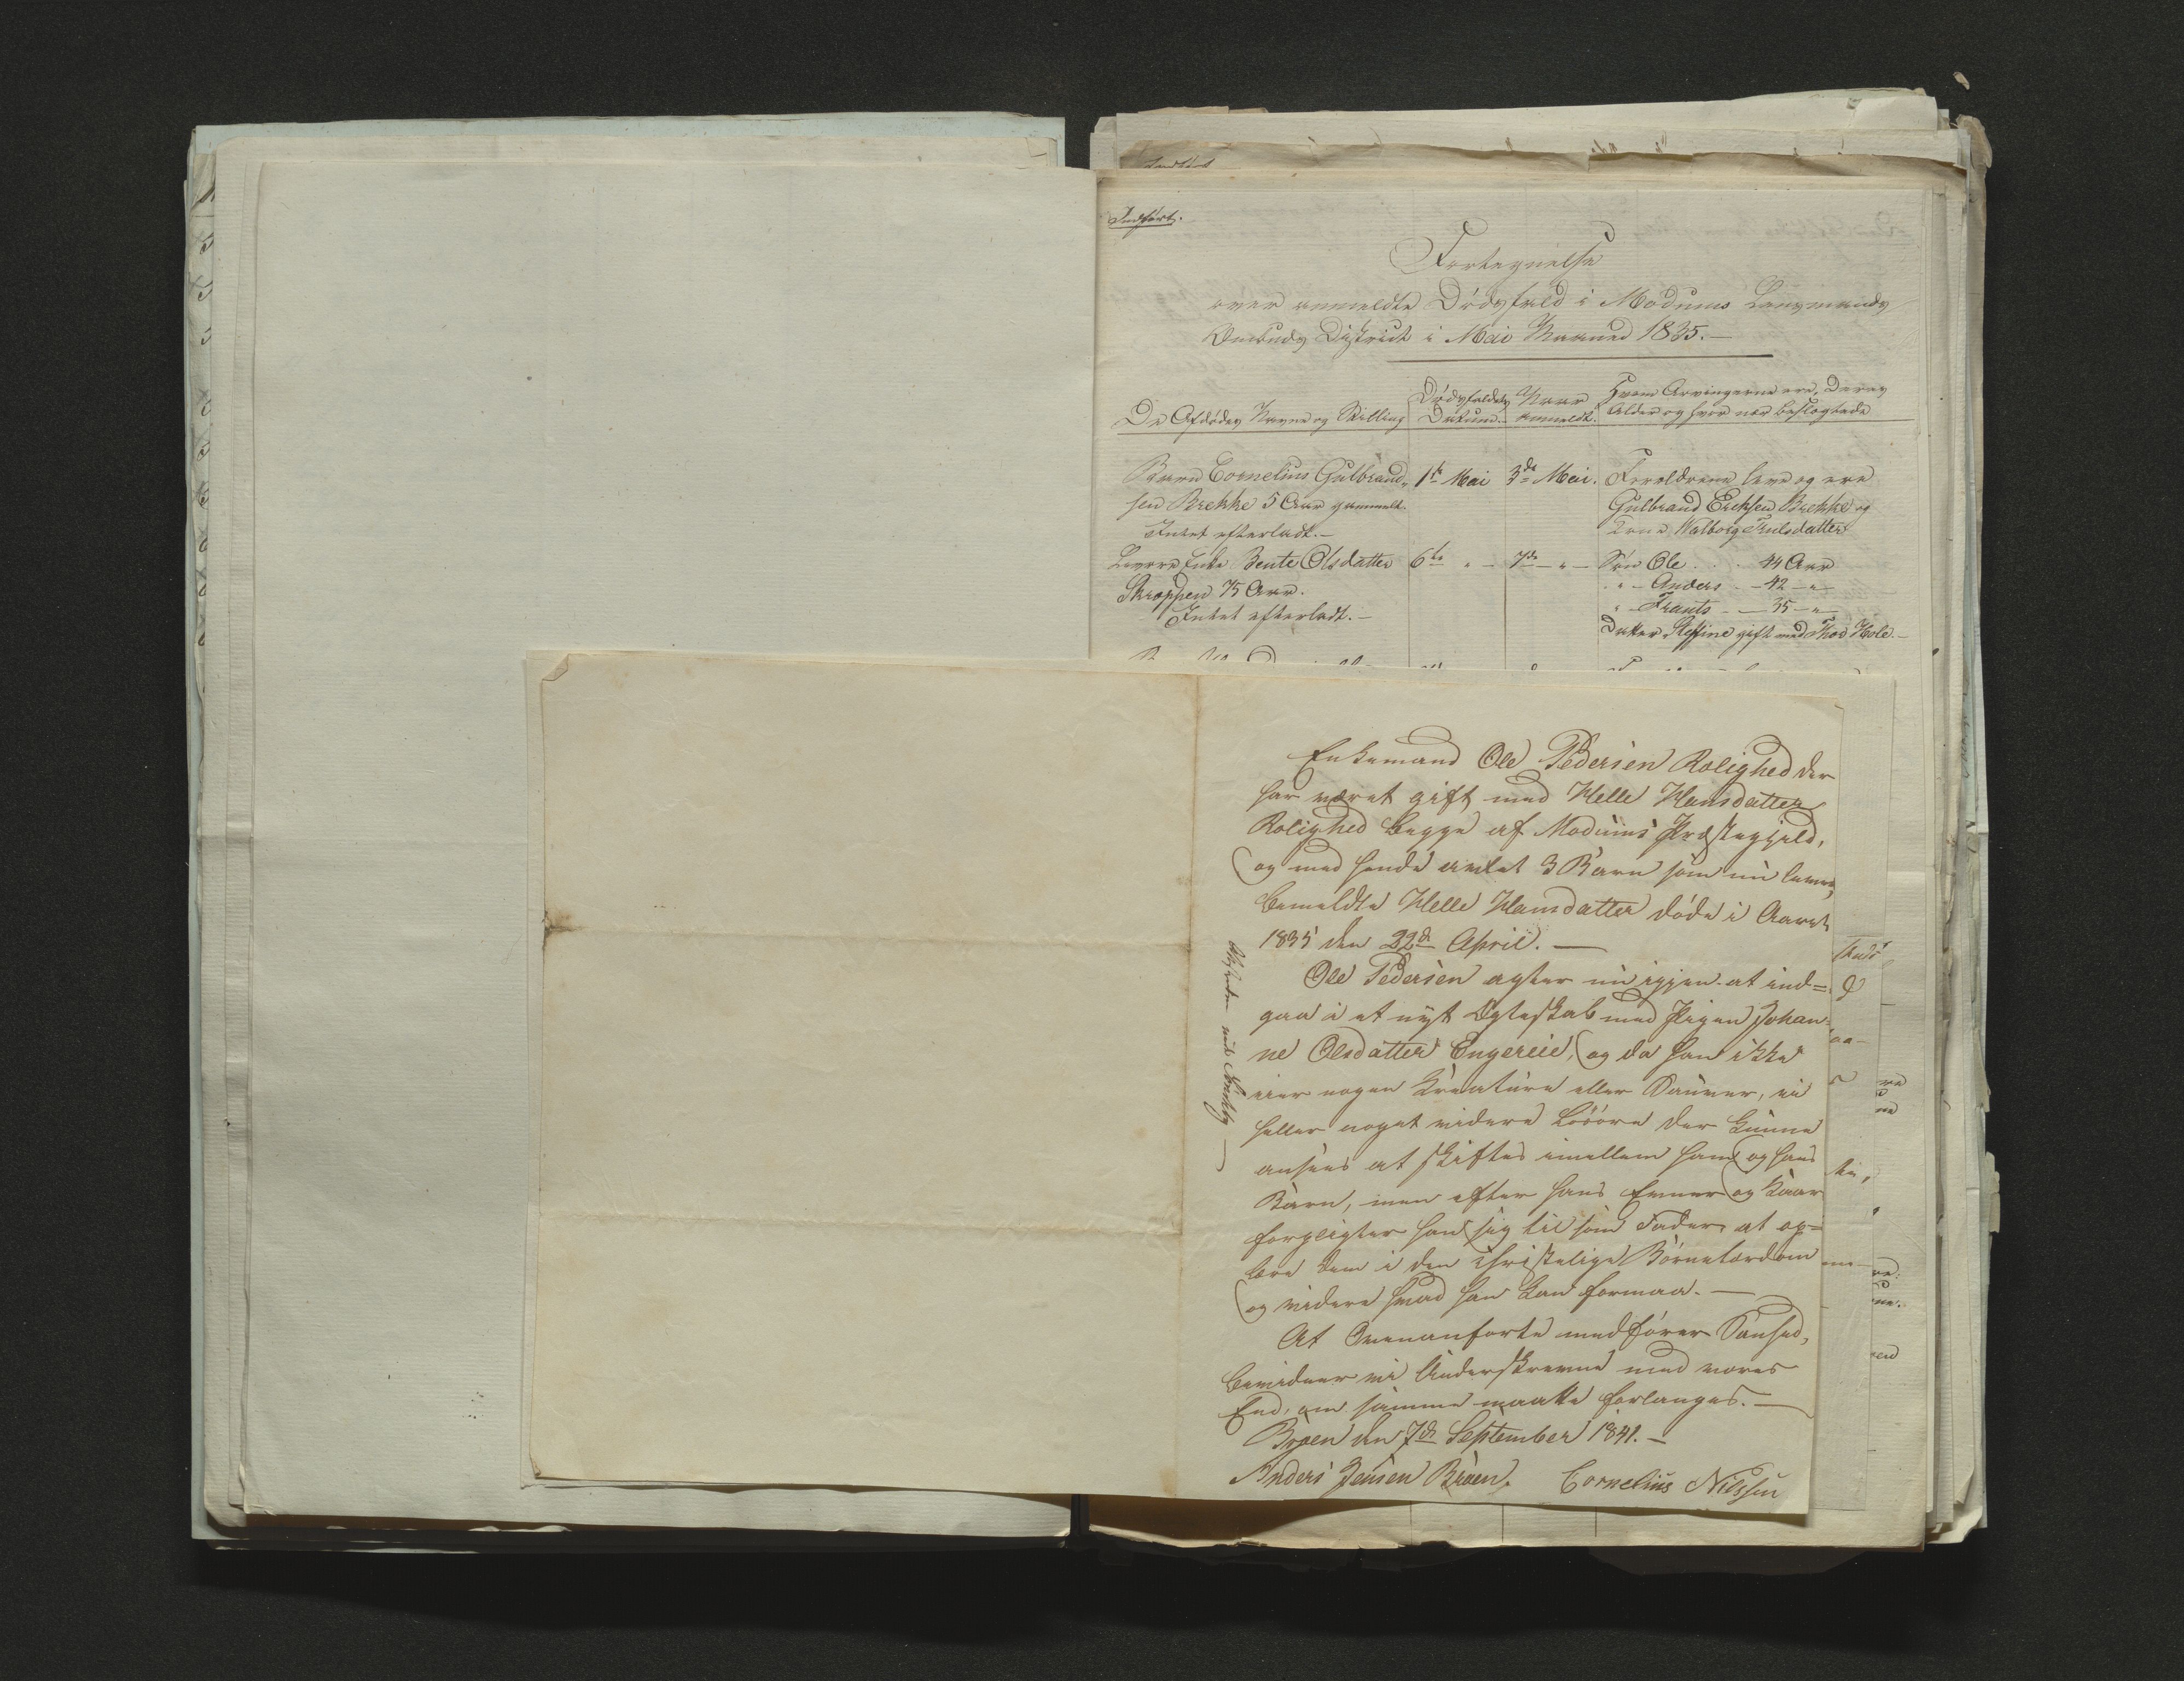 Indført.
Fortegnelse
over anmeldte Dødsfald i Modums Lensmands
Ombuds District i Mai Maaned 1835.—
De Afdødes Navne og Stilling
Dødsfaldets Datum.
Naar anmeldt.
Hvem Arvingerne ere, Deres
Alder og hvor nær beslægtede
Barn Cornelius Gulbrand- 1te Mai 3de Mai. Forældrene leve og ere
sen Brekke 5 Aar gammelt. Gulbrand Ericksen Brekke og
Intet efterladt.— Kone Walborg Trulsdatter
Enke Bente Olsdatter 6te " — 7de — " — Søn Ole . . 44 Aar
Skroppen 75 Aar. " — Anders — 42 — "
Intet efterladt.— " — Frants — 35 — "
Datter Steffine gift med Thor Hole.—
Enkemand Ole Pedersen Rolighed der
har været gift med Helle Hansdatter
Rolighed begge af Modums Præstegjeld,
og med hende avlet 3 Børn som nu lever,
bemeldte Helle Hansdatter døde i Aaret
1835 den 22de April. —
Ole Pedersen agter nu igjen at ind=
gaa i et nyt Ægteskab med Pigen Johan=
ne Olsdatter Engereie, og da han ikke
eier nogen Kreature eller Sauer, ei
heller noget videre Løsøre der kunne
ansees at skiftes imellem ham og hans
Børn, men efter hans Evner og Kaar
forpligter han sig til som Fader at op=
lære dem i den christelige Børnelærdom
og videre hvad han kan formaa. —
At Ovenanførte medfører Sanhed,
bevidner vi Underskrevne med vores
Eed, om samme maatte forlanges. —
Braaen den 7de September 1841. —
Anders Jensen Braaen. Cornelius Nilssen